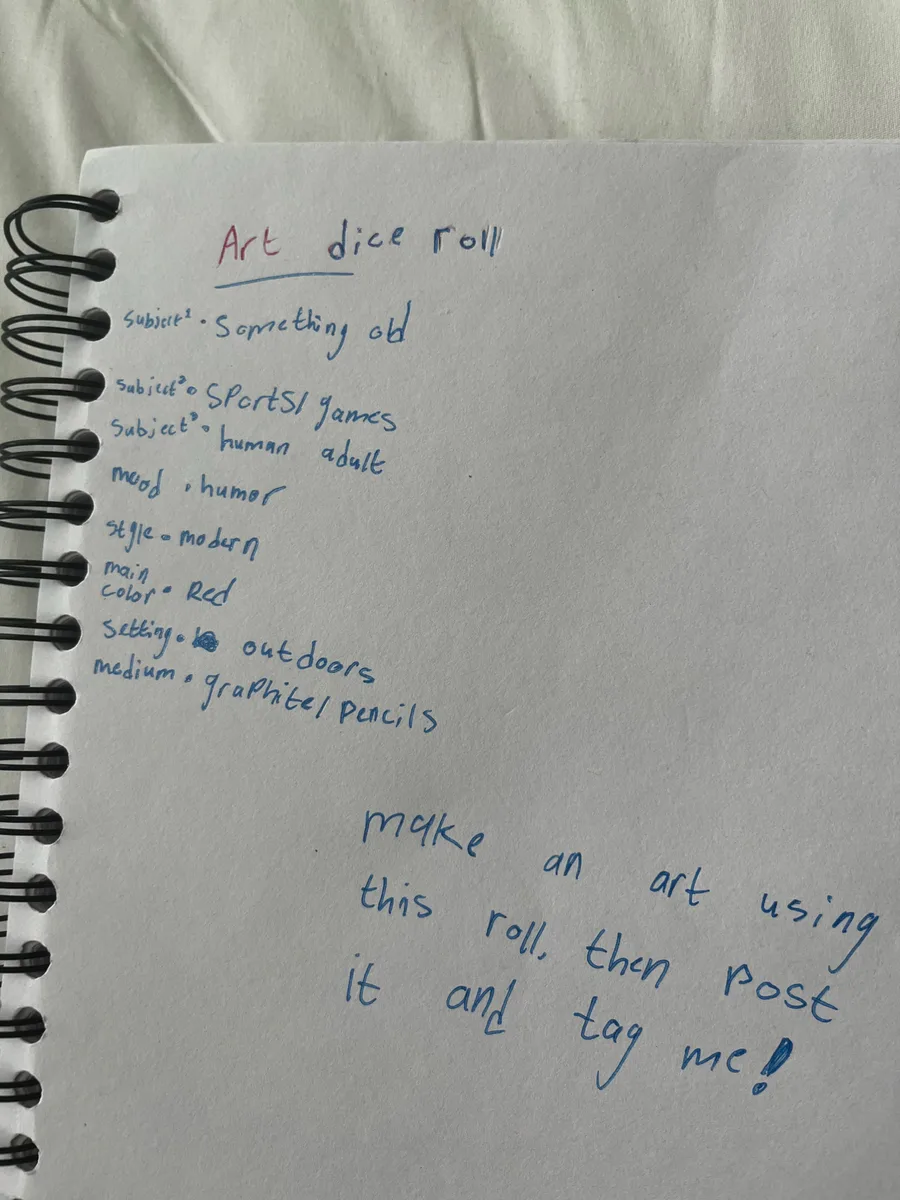 Art dice roll
subject¹ • Something old
subject² • Sports/games
subject³ • human adult
mood • humor
style • modern
main
color • Red
setting • outdoors
medium • graphite/pencils
make an art using
this roll. then post
it and tag me!